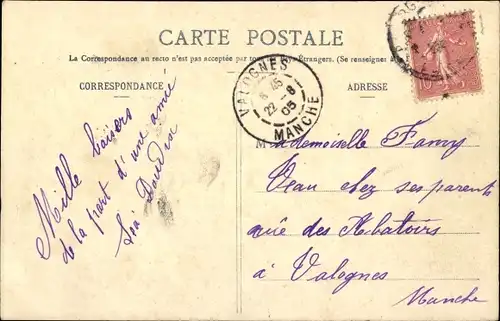 CARTE POSTALE
La Correspondance au recto n'est pas acceptée par tous les Pays Étrangers. (Se renseigner à
CORRESPONDANCE
ADRESSE
VALOGNES
22-8
05
MANCHE
10
Mille baisers
de la part d'une amie
Mademoiselle Fanny
Eau chez ses parents
rue des Abatoirs
à Valognes
Manche